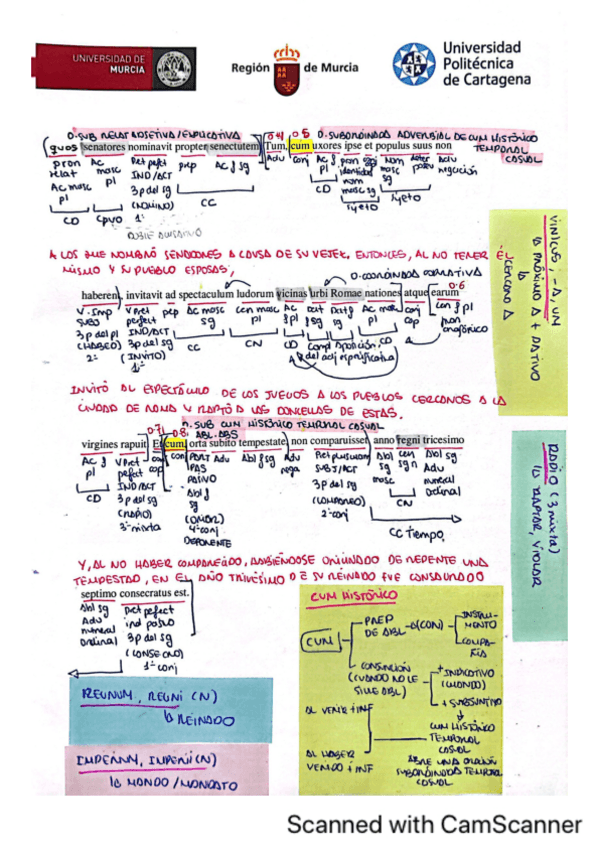 UNIVERSIDAD DE
MURCIA
Región de Murcia
Universidad
Politécnica
de Cartagena
O. SUB RELAT ADJETIVA/EXPLICATIVA
O4 O5 O. SUBORDINADA ADVERBIAL DE CUM HISTÓRICO
TEMPORAL
CAUSAL
quos senatores nominavit propter senectutem. Tum, cum uxores ipse et populus suus non
pron Ac Pret perf prep Ac f sg Adv conj Ac f pron Nom Adv
relat masc IND/ACT pl identidad masc negación
Ac masc pl 3p del sg nom sg
pl (NOMINO) CC CD masc sg
CD CPVO 1ª sujeto sujeto
A LOS QUE NOMBRÓ SENADORES A CAUSA DE SU VEJEZ. ENTONCES, AL NO TENER ÉL
MISMO Y SU PUEBLO ESPOSAS,
O. COORDINADA COPULATIVA
O6
haberent, invitavit ad spectaculum ludorum vicinas urbi Romae nationes atque earum
V. Imp V Pret prep Ac masc Gen masc Ac Dat Ac conj Gen f pl
SUBJ perfect sg pl f pl f sg pl cop pron
3p del pl IND/ACT anafórico
(HABEO) 3p del sg CC CN CD CD
2ª (INVITO) A del adj especificativa
1ª
INVITÓ AL ESPECTÁCULO DE LOS JUEGOS A LOS PUEBLOS CERCANOS A LA
CIUDAD DE ROMA Y RAPTÓ A LAS DONCELLAS DE ESTAS.
O. SUB CUM HISTÓRICO TEMPORAL CAUSAL
O7 O8 ABL. ABS
virgines rapuit. Et cum, orta subito tempestate, non comparuisset, anno regni tricesimo
Ac f V Pret conj conj PART Adv Abl f sg Adv Pret pluscuam Abl Gen Abl sg
pl perfect cop PAS nega SUBJ/ACT sg sg n Adv
IND/ACT PASIVO 3p del sg masc numeral
CD 3p del sg Abl f (COMPAREO) CN ordinal
(RAPIO) sg 2ª conj
3ª mixta (ORIOR) CC Tiempo
4ª conj
DEPONENTE
Y, AL NO HABER COMPARECIDO, HABIÉNDOSE ORIGINADO DE REPENTE UNA
TEMPESTAD, EN EL AÑO TRIGÉSIMO DE SU REINADO FUE CONSAGRADO
septimo consecratus est.
Abl sg Pret perfect
Adv ind pasivo
numeral 3p del sg
ordinal (CONSECRO)
1ª conj
VINICUS, -A, UM
PRÓXIMO A + DATIVO
CERCANO A
RAPIO (3 mixta)
RAPTAR, VIOLAR
CUM HISTÓRICO
CUM
PREP DE ABL (CON)
INSTRUMENTO
COMPAÑÍA
CONJUNCIÓN
(CUANDO NO LE
SIGUE ABL)
+ INDICATIVO
(CUANDO)
+ SUBJUNTIVO
CUM HISTÓRICO
TEMPORAL
CAUSAL
AL VENIR + INF
AL HABER
VENIDO + INF
ABRE UNA ORACIÓN
SUBORDINADA TEMPORAL
CAUSAL
REGNUM, REGNI (N)
REINADO
IMPERIUM, IMPERII (N)
MANDO/MANDATO
Scanned with CamScanner